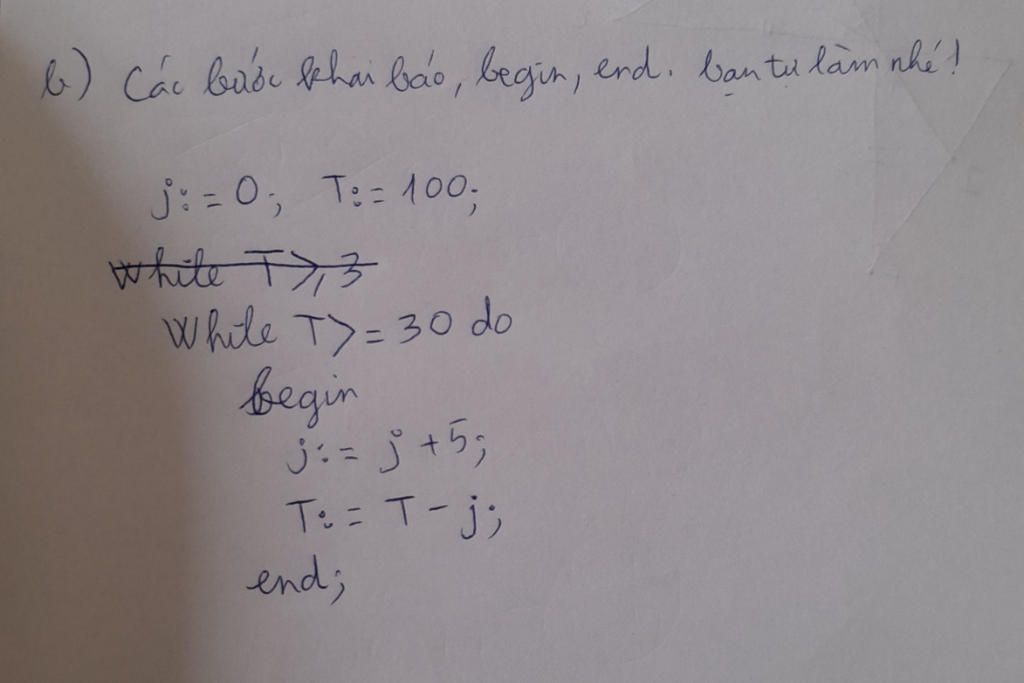 b) Các bước khai báo, begin, end. bạn tự làm nhé!
j:=0; T:= 100;
while T>,3
While T>= 30 do
begin
j:= j +5;
T:= T - j;
end;